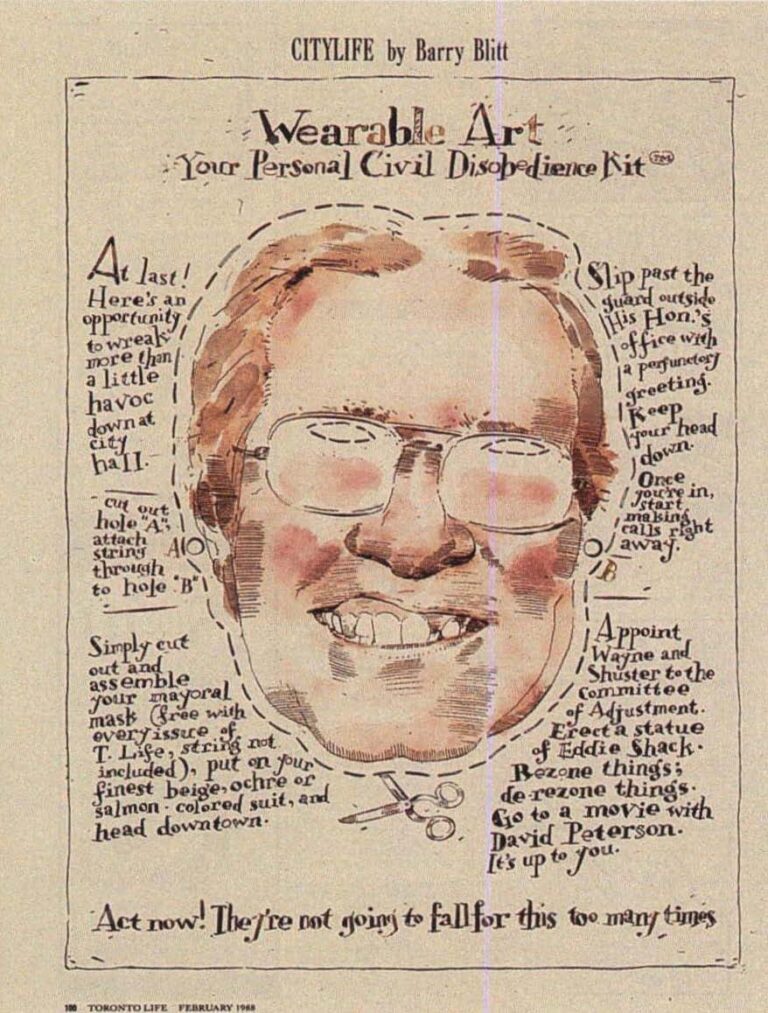 CITYLIFE by Barry Blitt
Wearable Art
Your Personal Civil Disobedience Kit™
At last!
Here's an
opportunity
to wreak
more than
a little
havoc
down at
city
hall.
cut out
hole "A",
attach
string
through
to hole "B"
A
Simply cut
out and
assemble
your mayoral
mask (free with
every issue of
T. Life, string not
included), put on your
finest beige, ochre or
salmon-colored suit, and
head downtown.
Slip past the
guard outside
His Hon.'s
office with
a perfunctory
greeting.
Keep
your head
down.
Once
you're in,
start
making
calls right
away.
B
Appoint
Wayne and
Shuster to the
Committee
of Adjustment.
Erect a statue
of Eddie Shack.
Rezone things;
de-rezone things.
Go to a movie with
David Peterson.
It's up to you.
Act now! They're not going to fall for this too many times
100 TORONTO LIFE FEBRUARY 1988